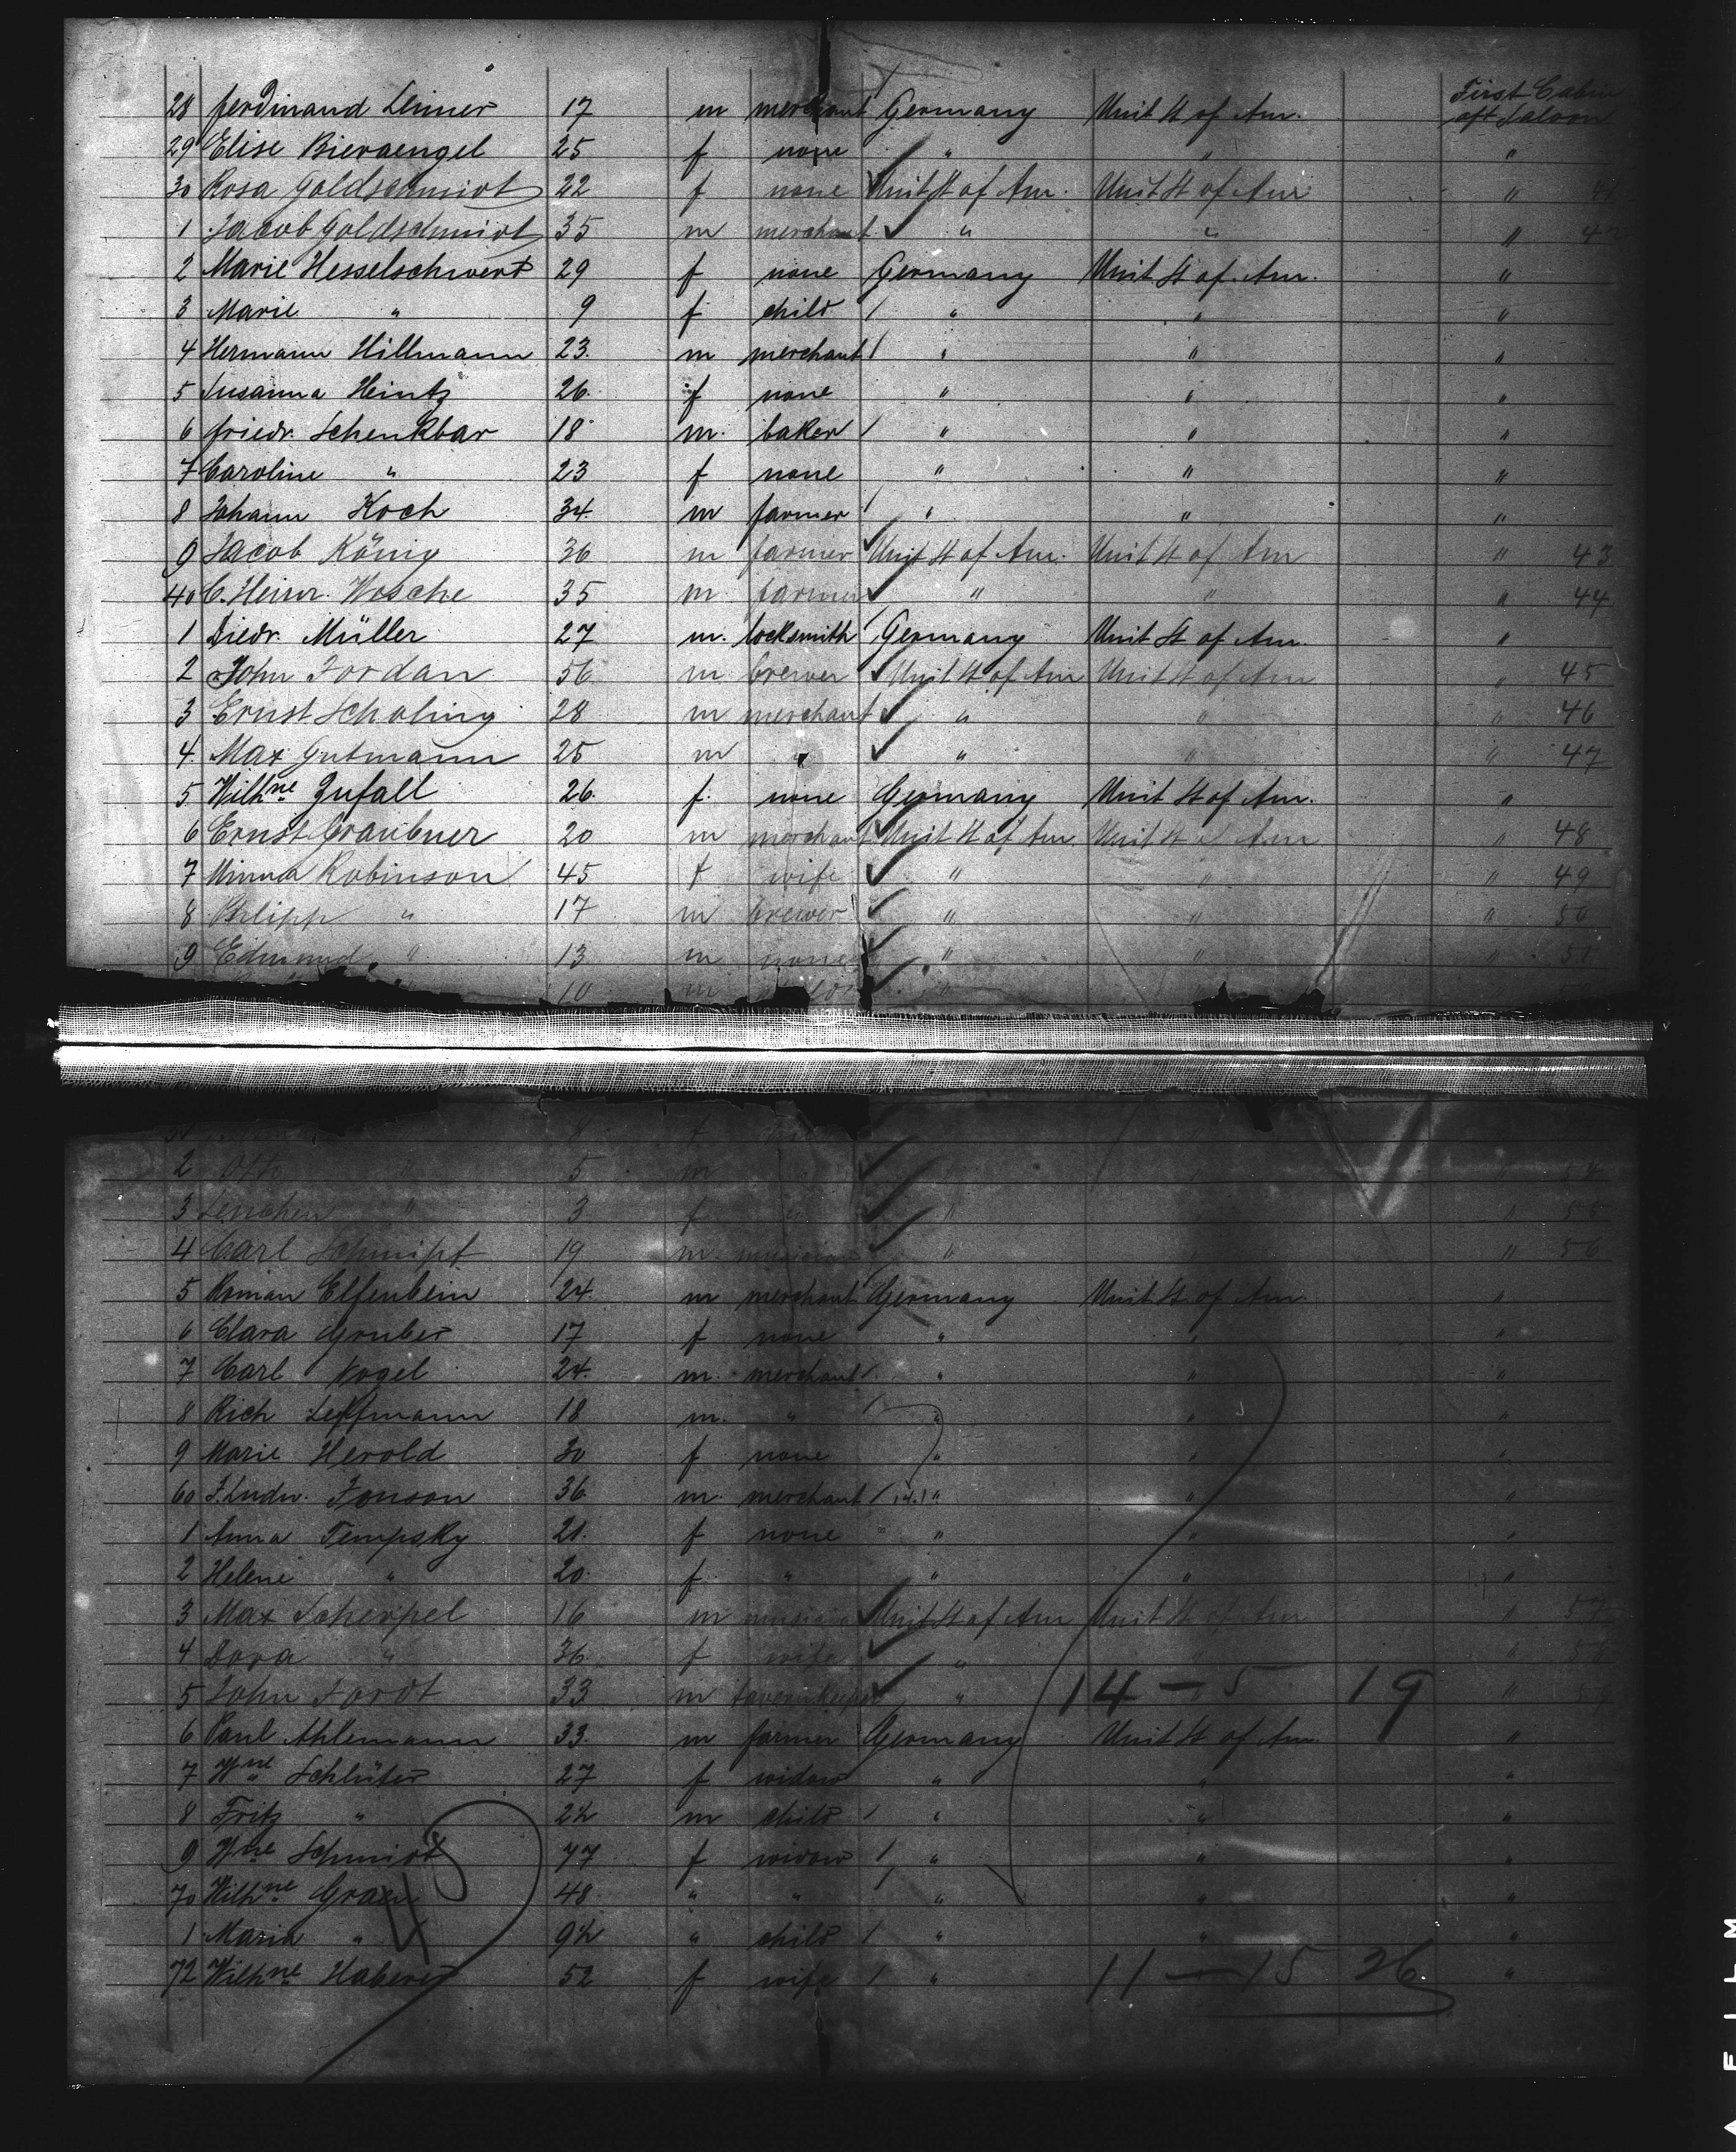 First Cabin
28 Ferdinand Leimer 17 m merchant Germany Unit St of Am. aft Saloon
29 Elise Bieraengel 25 f none " " "
30 Rosa Goldschmidt 22 f none Unit St of Am. Unit St of Am "
1 Jacob Goldschmidt 35 m merchant " " " 42
2 Marie Hesselschwert 29 f none Germany Unit St of Am. "
3 Marie " 9 f child " " "
4 Hermann Hillmann 23. m merchant " " "
5 Susanna Heintz 26. f none " " "
6 Friedr. Schenkbar 18 m. baker " " "
7 Caroline " 23 f none " " "
8 Johann Koch 34. m farmer " " "
9 Jacob König 36 m farmer Unit St of Am. Unit St of Am " 43
40 C. Heinr. Wosche 35 m. farmer " " " 44
1 Diedr. Müller 27 m. locksmith Germany Unit St of Am. "
2 John Jordan 56 m brewer Unit St of Am Unit St of Am " 45
3 Ernst Scholing 28 m merchant " " " 46
4. Max Gutmann 25 m " " " " 47
5 Wilhne Zufall 26. f. none Germany Unit St of Am. "
6 Ernst Graubner 20 m merchant Unit St of Am. Unit St of Am " 48
7 Minna Robinson 45 f wife " " " 49
8 Philipp " 17 m brewer " " " 50
9 Edmund " 13 m none " " " 51
" 10 m "
8 f
2 Otto " 5 m " "
3 Lenchen " 3 f " " "
4 Carl 19 m. musician " " " 56
5 Roman Elfenbein 24. m merchant Germany Unit St of Am "
6 Clara Gruber 17 f none " " "
7 Carl Vogel 24. m. merchant " " "
8 Rich Leffmann 18 m. " " " "
9 Marie Herold 30 f none " " "
60 J. Ludw. Jonson 36 m. merchant " " "
1 Anna Tempsky 21. f none " " "
2 Helene " 20. f. " " " "
3 Max Scherpel 16 m musician Unit St of Am Unit St of Am " 57
4 Dora " 36. f wife " " 58
5 John Jordt 33 m tavernkeeper " 14 — 5 19 "
6 Paul Ahlemann 33. m farmer Germany Unit St of Am. "
7 Wne Schlüter 27 f widow " " "
8 Fritz " 2½ m child " " "
9 Wne Schmidt 77 f widow " " "
70 Wilhne Graen 48 " " " " "
1 Maria " 9½ " child " " "
72 Wilhne Haberer 52 f wife " 11 — 15 26. "